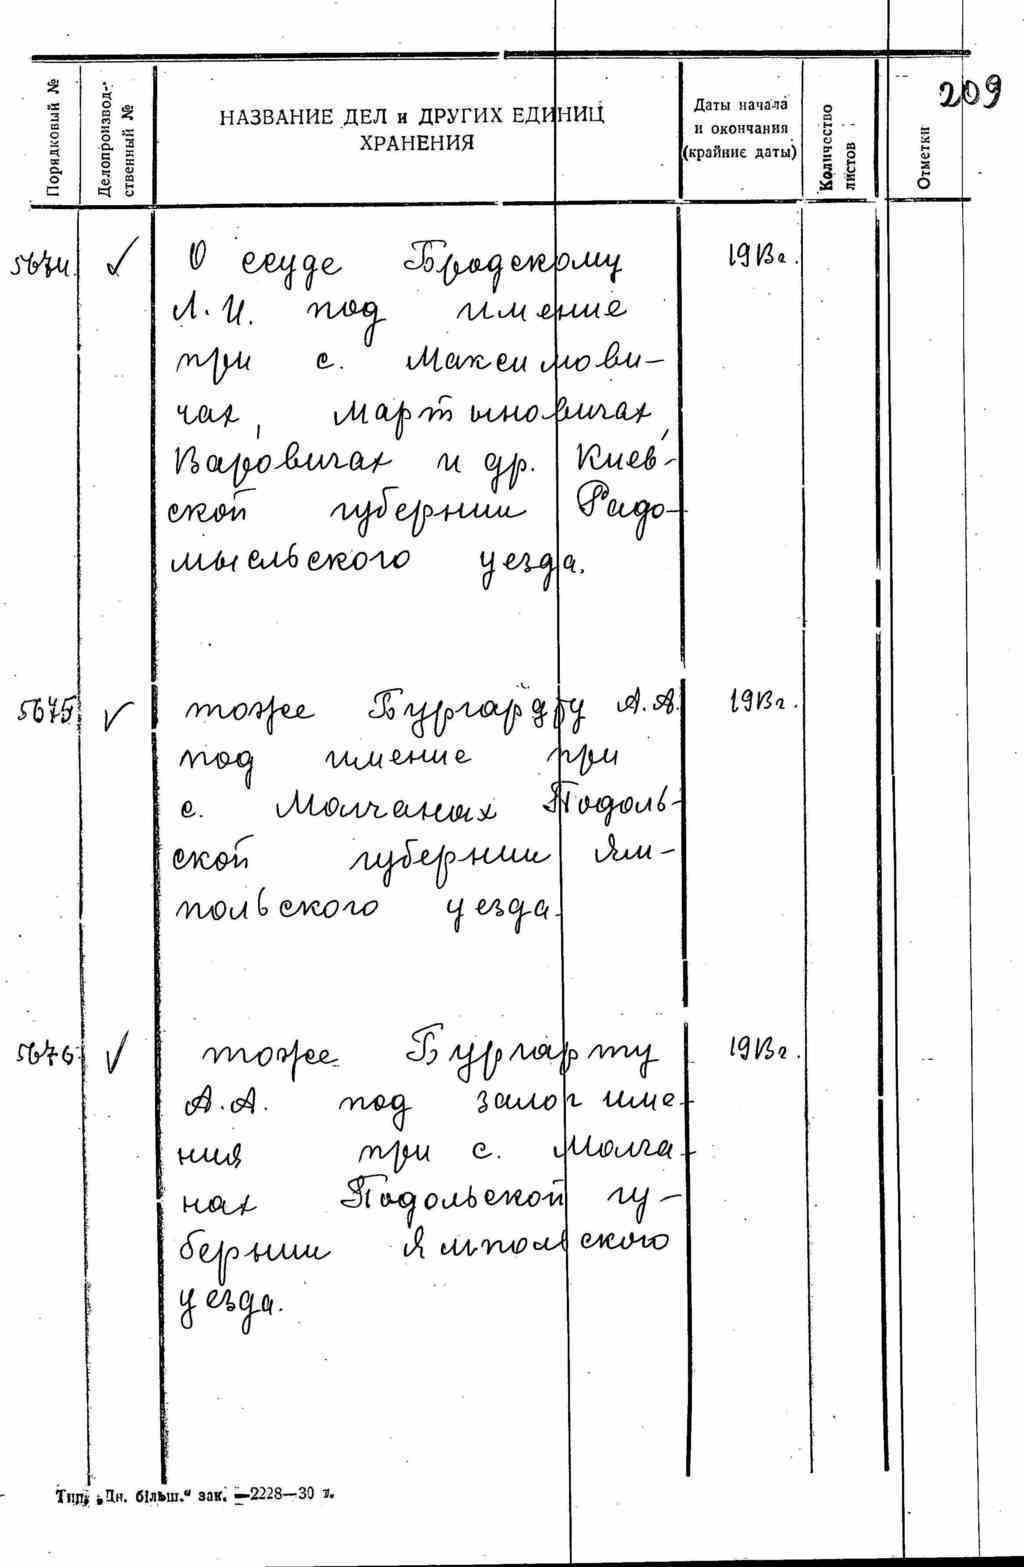 209
Порядковый №
Делопроизвод-
ственный №
НАЗВАНИЕ ДЕЛ и ДРУГИХ ЕДИНИЦ
ХРАНЕНИЯ
Даты начала
и окончания
(крайние даты)
Количество
листов
Отметки
5674. √ О ссуде Бродскому 1913г.
Л. И. под имение
при с. Максимови-
чах, Мартыновичах,
Варовичах и др. Киев-
ской губернии Радо-
мысльского уезда.
5675 √ тоже Бургардту А.А. 1913г.
под имение при
с. Молчанах Подоль-
ской губернии Ям-
польского уезда.
5676 √ тоже Бургарту 1913г.
А.А. под залог име-
ния при с. Молча-
нах Подольской гу-
бернии Ямпольского
уезда.
Тип. „Дн. більш.“ зак. —2228—30 т.